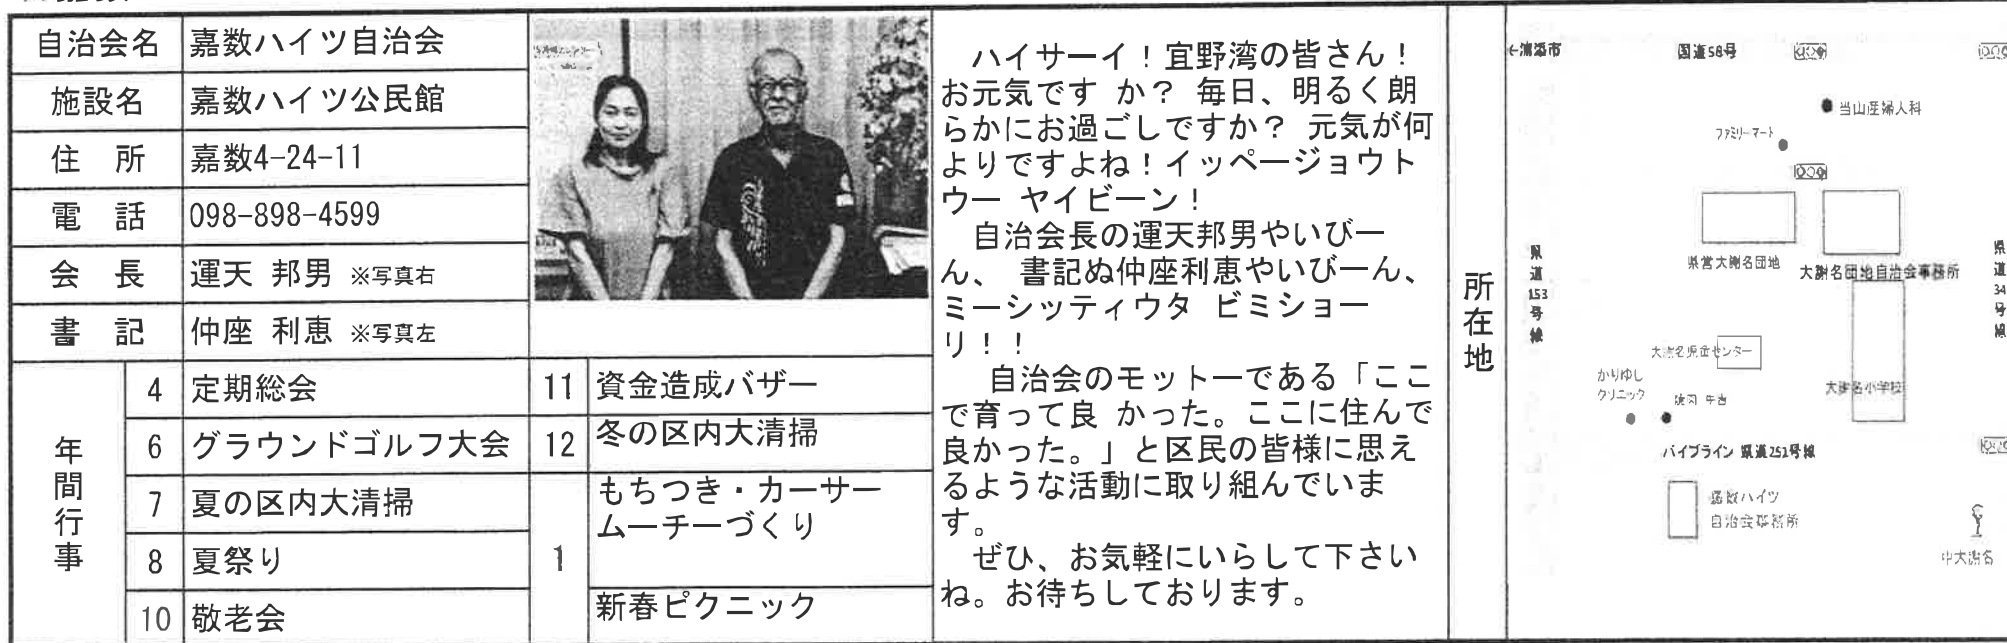 自治会名 嘉数ハイツ自治会
施設名 嘉数ハイツ公民館
住 所 嘉数4-24-11
電 話 098-898-4599
会 長 運天 邦男 ※写真右
書 記 仲座 利恵 ※写真左
年間行事
4 定期総会
6 グラウンドゴルフ大会
7 夏の区内大清掃
8 夏祭り
10 敬老会
11 資金造成バザー
12 冬の区内大清掃
1 もちつき・カーサー
ムーチーづくり
新春ピクニック
ハイサーイ！宜野湾の皆さん！
お元気です か？ 毎日、明るく朗
らかにお過ごしですか？ 元気が何
よりですよね！イッページョウト
ウー ヤイビーン！
自治会長の運天邦男やいびー
ん、 書記ぬ仲座利恵やいびーん、
ミーシッティウタ ビミショー
リ！！
自治会のモットーである「ここ
で育って良 かった。ここに住んで
良かった。」と区民の皆様に思え
るような活動に取り組んでいま
す。
ぜひ、お気軽にいらして下さい
ね。お待ちしております。
所在地
←浦添市
国道58号
当山産婦人科
ファミリーマート
県営大謝名団地
大謝名団地自治会事務所
県道153号線
県道34号線
大謝名児童センター
かりゆし
クリニック
大謝名小学校
パイプライン 県道251号線
嘉数ハイツ
自治会事務所
中大謝名